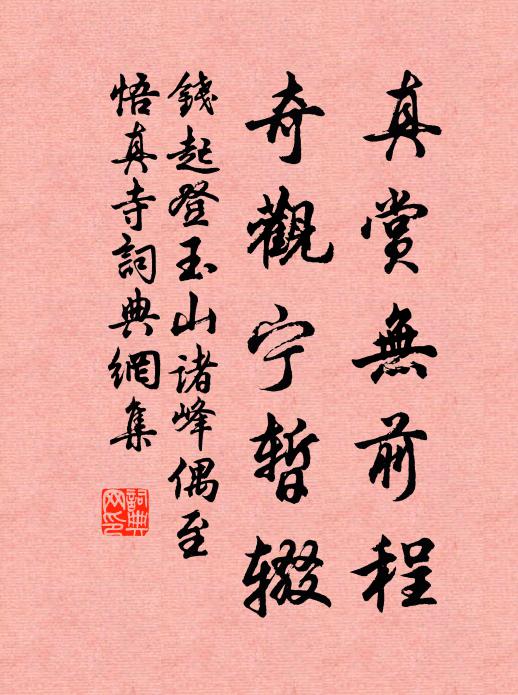 真賞無前程
奇觀宁暫辍
錢起登玉山诸峰偶至
悟真寺詞典網集
詞典网印